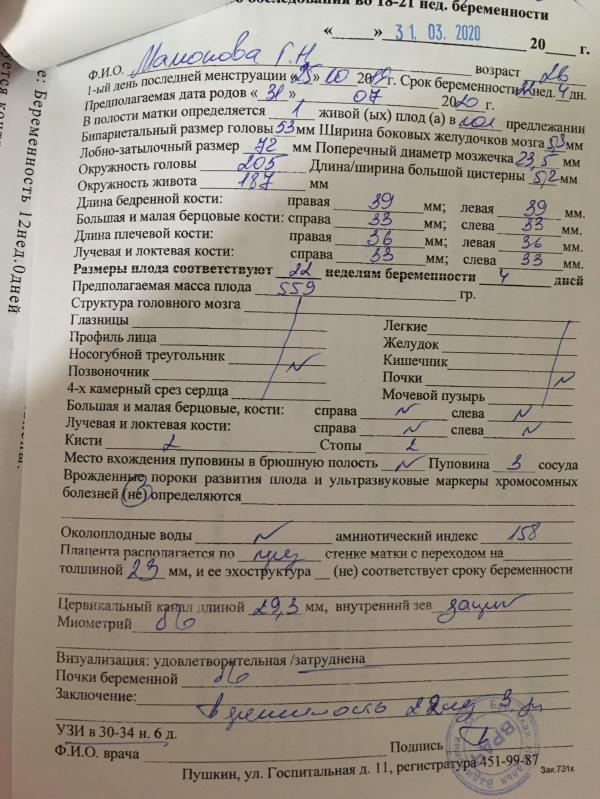 обследования во 18-21 нед. беременности
«_____» 31. 03. 2020 20____ г.
Ф.И.О. Г.Н возраст 26
1-ый день последней менструации «25» 10 2019г. Срок беременности 22нед. 4 дн.
Предполагаемая дата родов « 31 » 07 2020 г.
В полости матки определяется 1 живой (ых) плод (а) в гол предлежании
Бипариетальный размер головы 53мм Ширина боковых желудочков мозга 5,3мм
Лобно-затылочный размер 72 мм Поперечный диаметр мозжечка 23,5 мм
Окружность головы 205 Длина/ширина большой цистерны 5,2мм
Окружность живота 187 мм
Длина бедренной кости: правая 39 мм; левая 39 мм.
Большая и малая берцовые кости: справа 33 мм; слева 33 мм.
Длина плечевой кости: правая 36 мм; левая 36 мм.
Лучевая и локтевая кости: справа 33 мм; слева 33 мм.
Размеры плода соответствуют 22 неделям беременности 4 дней
Предполагаемая масса плода 559 гр.
Структура головного мозга
Глазницы Легкие
Профиль лица Желудок
Носогубной треугольник N Кишечник
Позвоночник Почки N
4-х камерный срез сердца Мочевой пузырь
Большая и малая берцовые, кости: справа N слева N
Лучевая и локтевая кости: справа N слева N
Кисти 2 Стопы 2
Место вхождения пуповины в брюшную полость N Пуповина 3 сосуда
Врожденные пороки развития плода и ультразвуковые маркеры хромосомных
болезней (не) определяются
Околоплодные воды N амниотический индекс 158
Плацента располагается по стенке матки с переходом на
толщиной 23 мм, и ее эхоструктура __ (не) соответствует сроку беременности
Цервикальный канал длиной 29,3 мм, внутренний зев
Миометрий
Визуализация: удовлетворительная /затруднена
Почки беременной
Заключение: Беременность 22нед 3 дн
УЗИ в 30-34 н. 6 д.
Ф.И.О. врача Подпись
Пушкин, ул. Госпитальная д. 11, регистратура 451-99-87 Зак.731к
ВРАЧ
е: Беременность 12нед.0дней